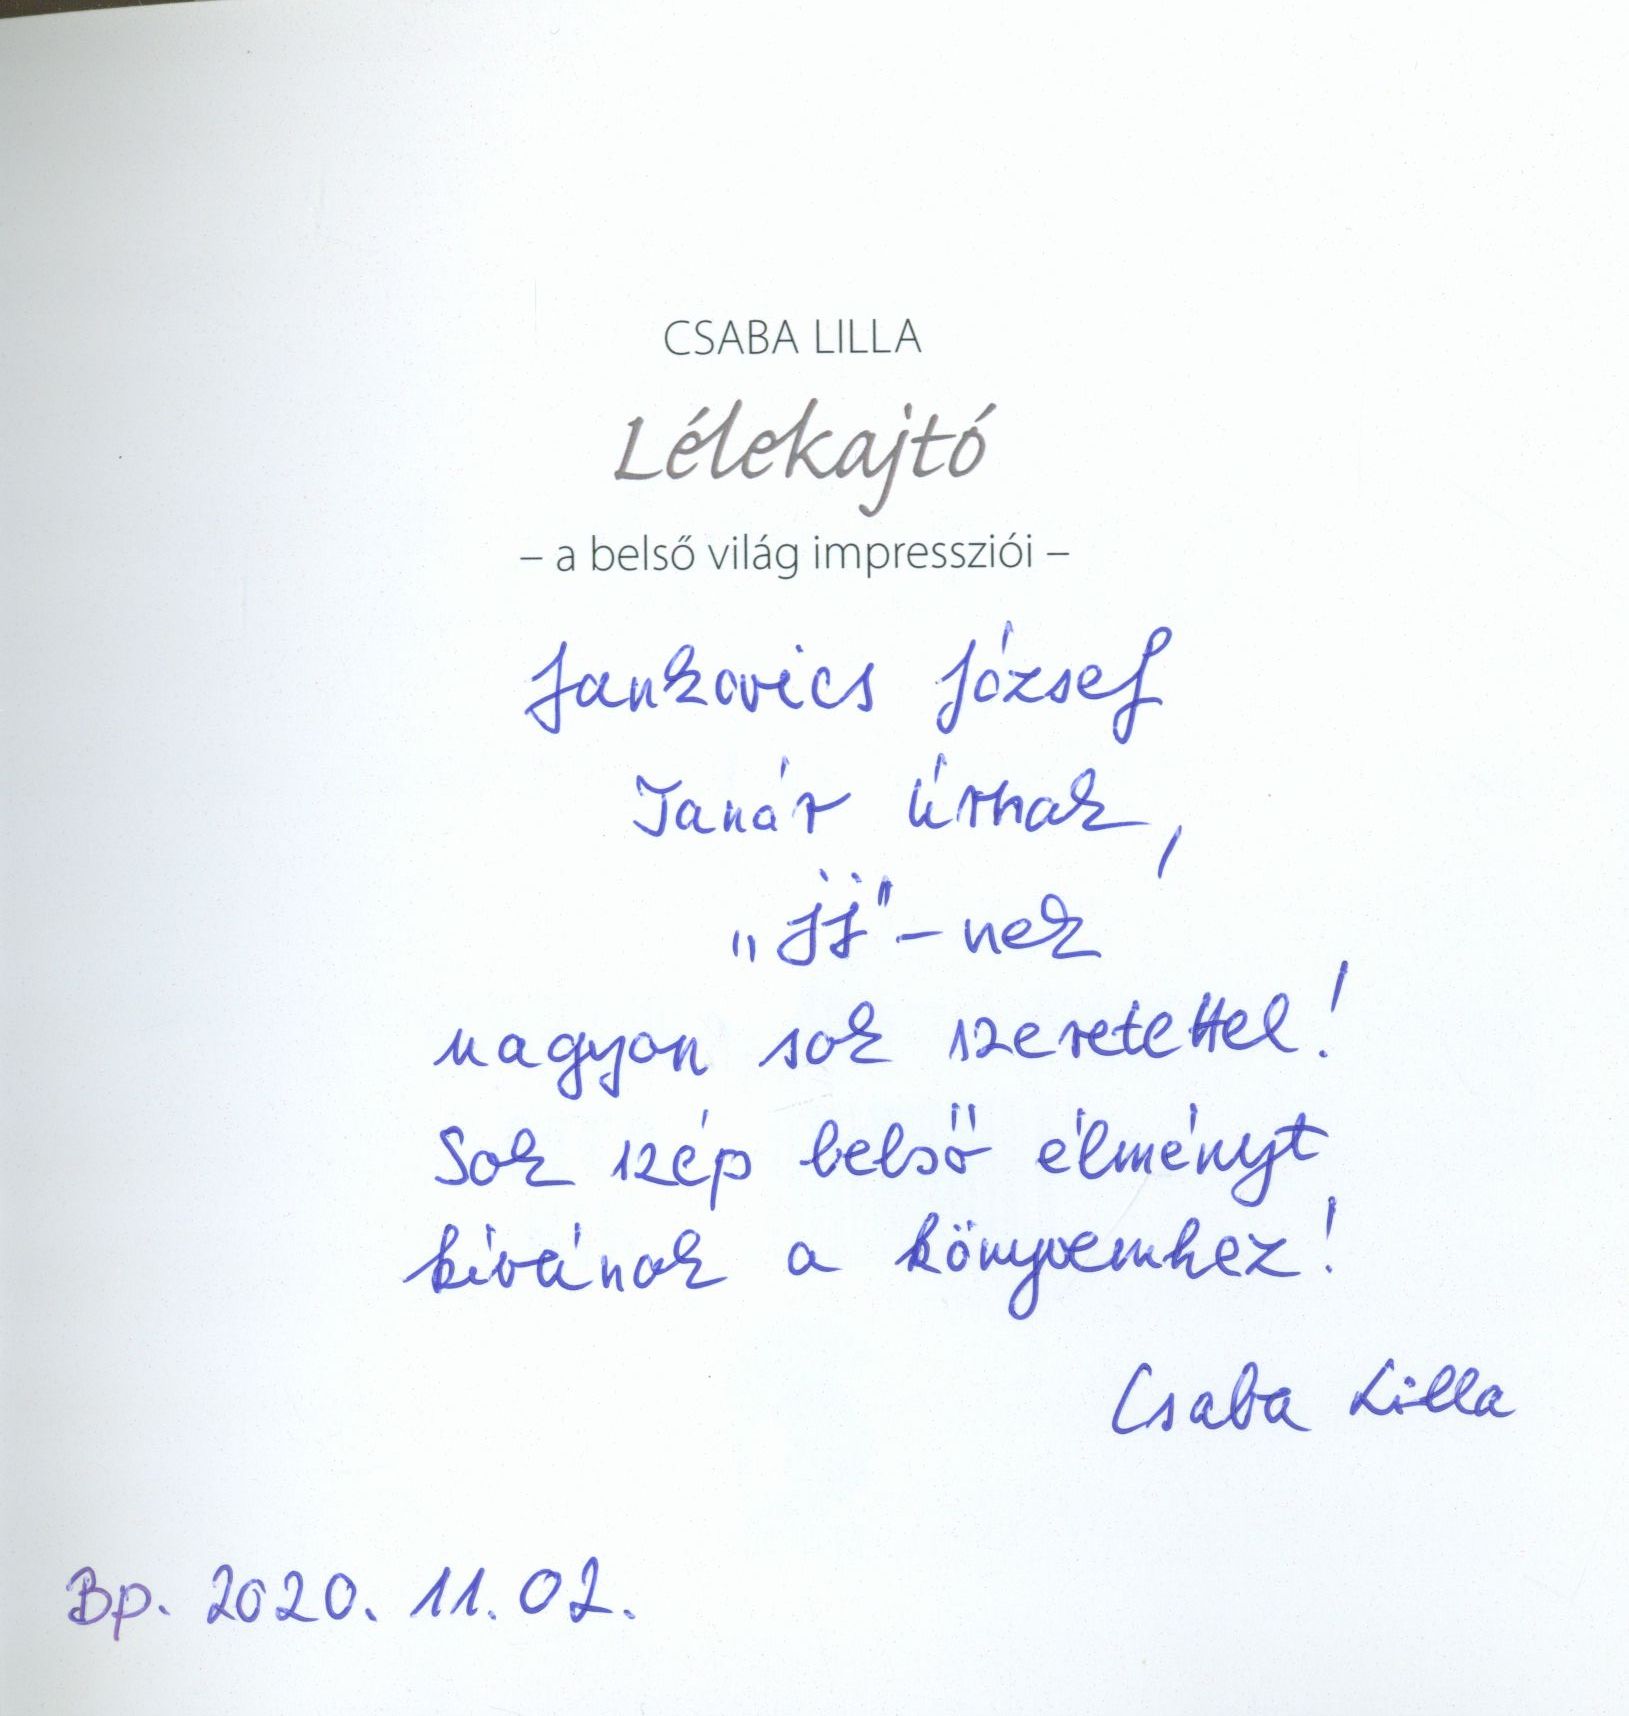 CSABA LILLA
Lélekajtó
– a belső világ impressziói –
Jankovics József
Tanár Úrnak,
„JJ"-nek
nagyon sok szeretettel!
Sok szép belső élményt
kívánok a könyvemhez!
Csaba Lilla
Bp. 2020. 11. 02.